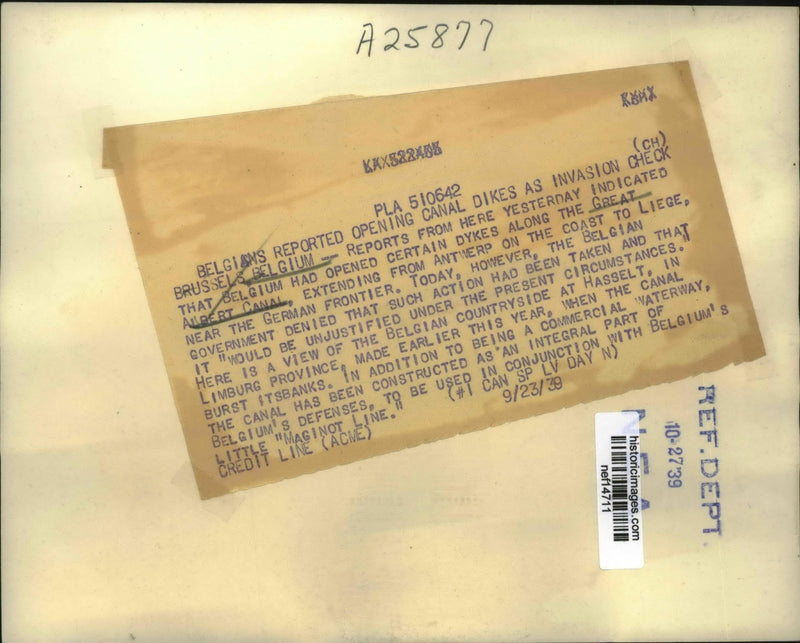 A25877
PLA 510642
(CH)
BELGIANS REPORTED OPENING CANAL DIKES AS INVASION CHECK
BRUSSELS, BELGIUM -- REPORTS FROM HERE YESTERDAY INDICATED
THAT BELGIUM HAD OPENED CERTAIN DYKES ALONG THE GREAT
ALBERT CANAL, EXTENDING FROM ANTWERP ON THE COAST TO LIEGE,
NEAR THE GERMAN FRONTIER. TODAY, HOWEVER, THE BELGIAN
GOVERNMENT DENIED THAT SUCH ACTION HAD BEEN TAKEN AND THAT
IT "WOULD BE UNJUSTIFIED UNDER THE PRESENT CIRCUMSTANCES."
HERE IS A VIEW OF THE BELGIAN COUNTRYSIDE AT HASSELT, IN
LIMBURG PROVINCE, MADE EARLIER THIS YEAR, WHEN THE CANAL
BURST ITSBANKS. IN ADDITION TO BEING A COMMERCIAL WATERWAY,
THE CANAL HAS BEEN CONSTRUCTED AS AN INTEGRAL PART OF
BELGIUM'S DEFENSES, TO BE USED IN CONJUNCTION WITH BELGIUM'S
LITTLE "MAGINOT LINE." (#1 CAN SP LV DAY N)
CREDIT LINE (ACME) 9/23/39
REF. DEPT.
10-27'39
N E A
historicimages.com
nef14711